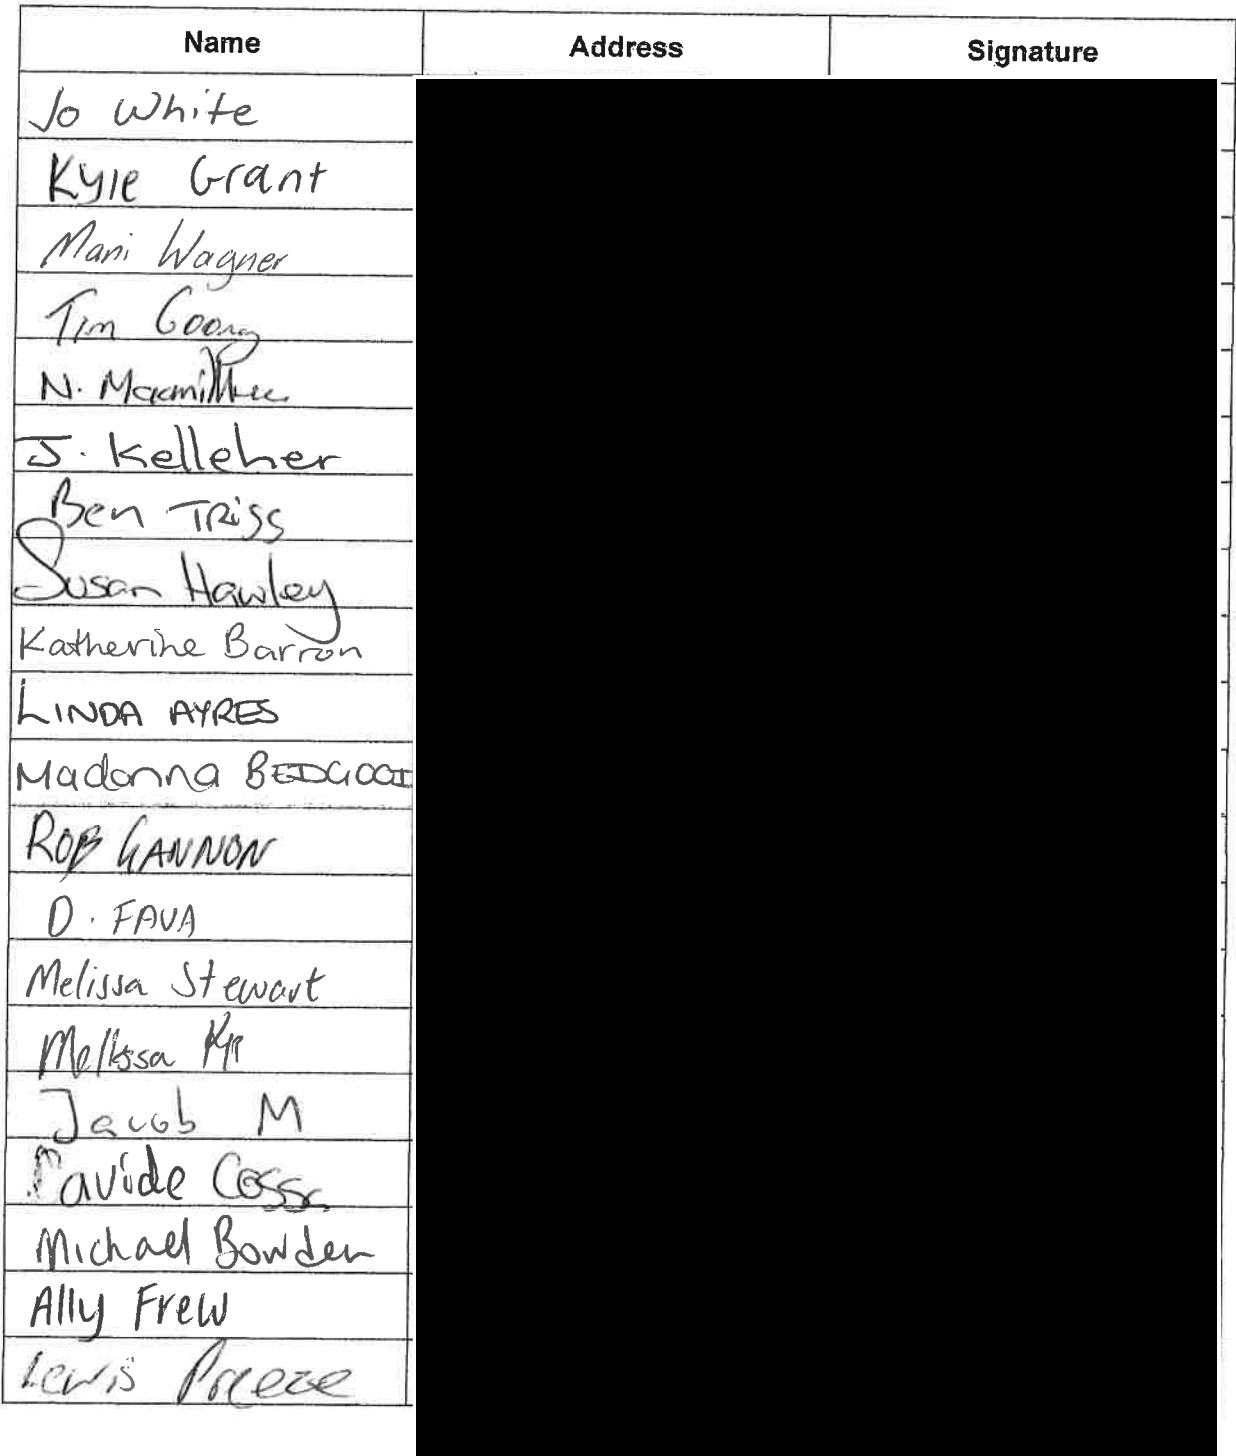 Name Address Signature
Jo White
Kyle Grant
Mani Wagner
Tim
N.
J. Kelleher
Ben TRiss
Susan Hawley
Katherine Barron
LINDA AYRES
Madonna
ROB GANNON
D. FAVA
Melissa Stewart
Melissa
Jacob M
Davide
Michael Bowden
Ally Frew
Lewis